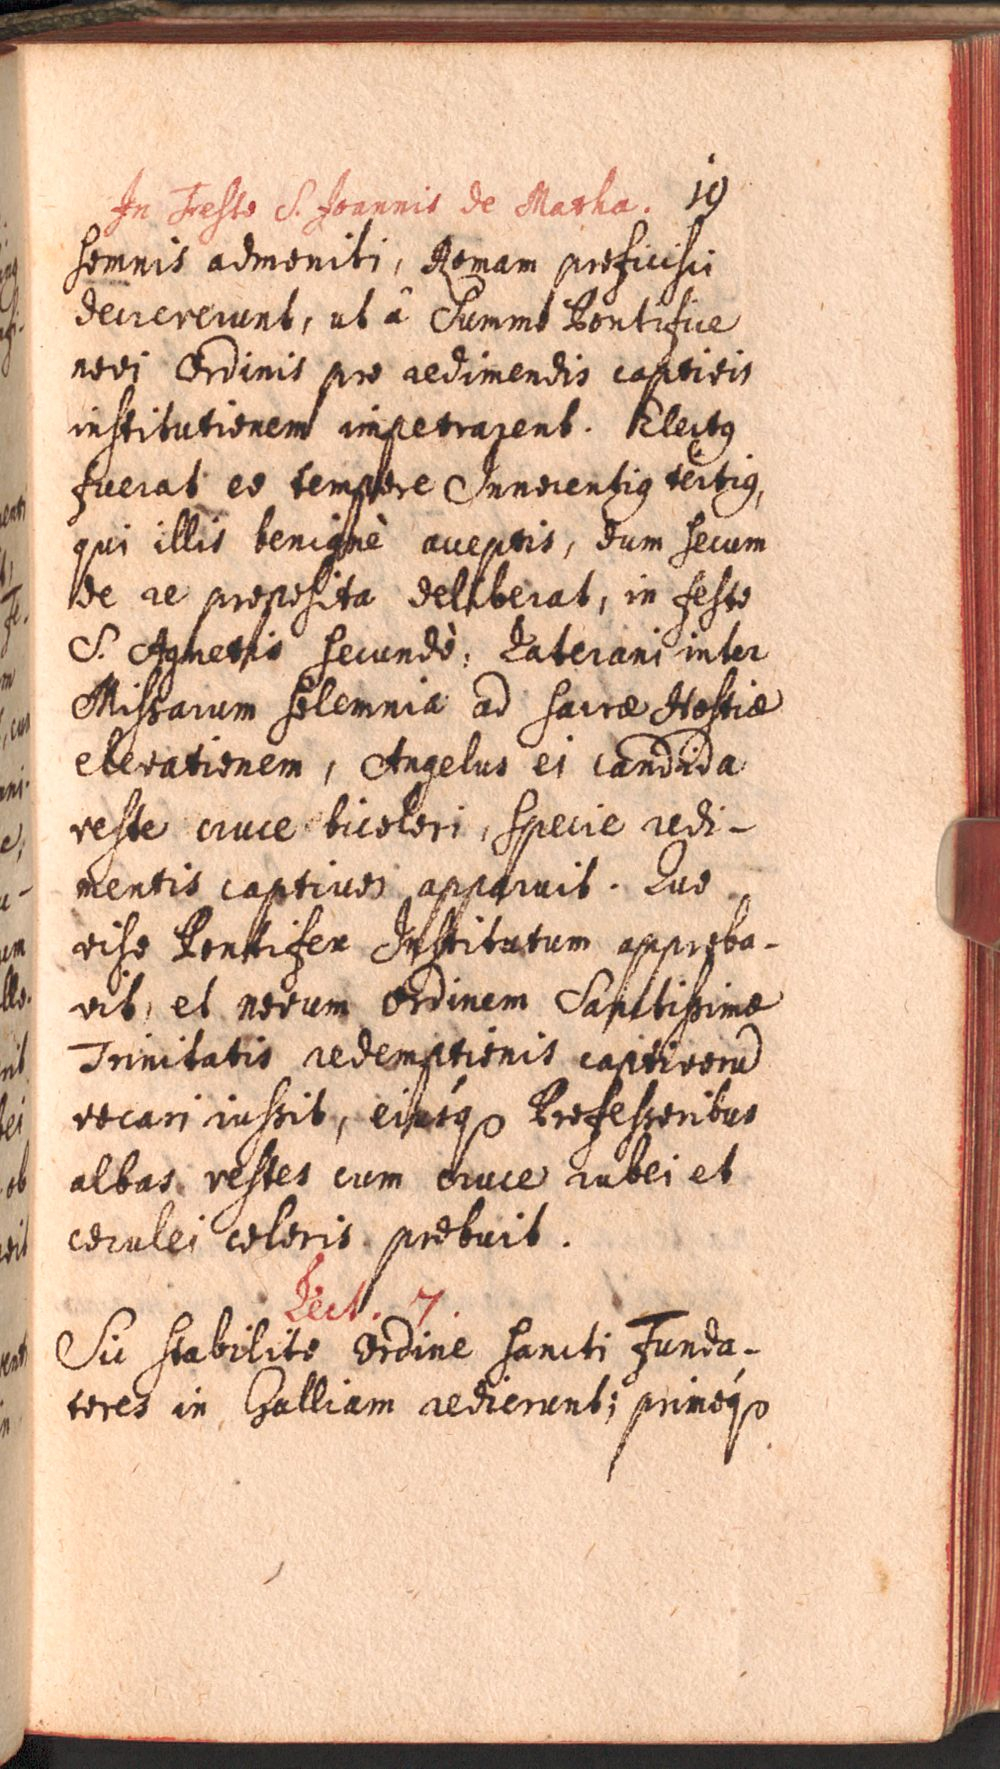 In Festo S. Joannis de Matha. 19
somnis admoniti, Romam proficisci
decreverunt, ut â Summo Pontifice
novi Ordinis pro redimendis captivis
institutionem impetrarent. Electq
fuerat eo tempore Innocentiq tertiq,
qui illis benignè acceptis, dum secum
de re proposita deliberat, in festo
S. Agnetis secundò, Laterani inter
Missarum solemnia ad sacræ Hostiæ
elevationem, Angelus ei candida
veste cruce bicolori, specie redi-
mentis captivos apparuit. Quo
viso Pontifex Institutum approba-
vit, et novum Ordinem Sanctissimæ
Trinitatis redemptionis captivorū
vocari iussit, eiusq́ Professoribus
albas vestes cum cruce rubei et
cœrulei coloris præbuit.
Lect. 7.
Sic stabilito Ordine sancti Funda-
tores in Galliam redierunt; primoq́